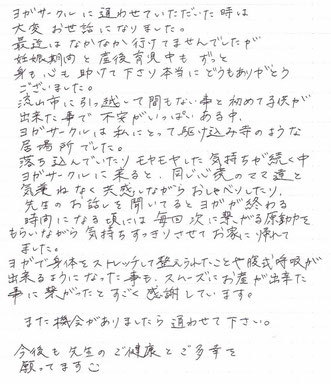 ヨガサークルに通わせていただいた時は
大変お世話になりました。
最近はなかなか行けてませんでしたが
妊娠期間と産後育児中もずっと
身も心も助けて下さり本当にどうもありがとう
ございました。
流山市に引っ越して間もない事と初めて子供が
出来た事で不安がいっぱいある中、
ヨガサークルは私にとって駆け込み寺のような
居場所でした。
落ち込んでいたりモヤモヤした気持ちが続く中
ヨガサークルに来ると、同じ心境のママ達と
気兼ねなく共感しながらおしゃべりしたり、
先生のお話しを聞いてるとヨガが終わる
時間になる頃には毎回次に繋がる原動力を
もらいながら気持ちすっきりさせてお家に帰れて
ました。
ヨガで身体をストレッチして整えられたことや腹式呼吸が
出来るようになった事も、スムーズにお産が出来た
事に繋がったとすごく感謝しています。
また機会がありましたら通わせて下さい。
今後も先生のご健康とご多幸を
願ってます